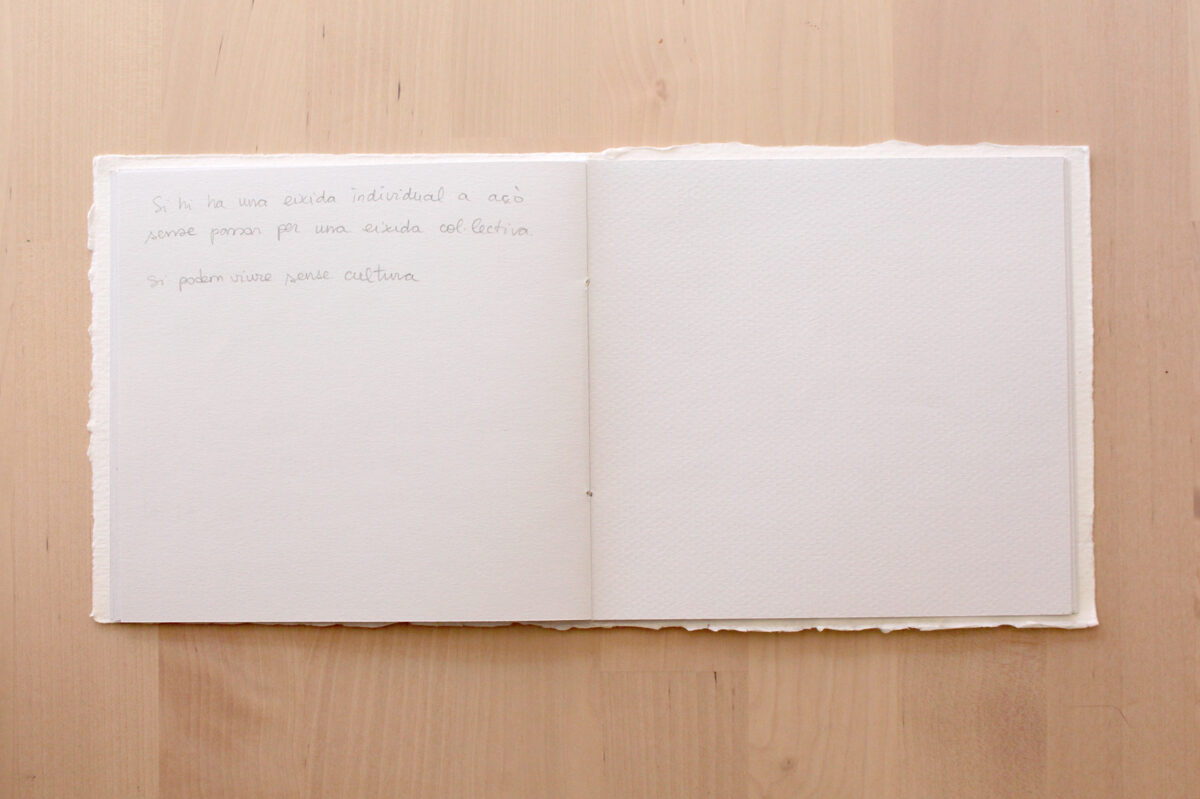 Si hi ha una eixida individual a açò
sense passar per una eixida col·lectiva.
Si podem viure sense cultura